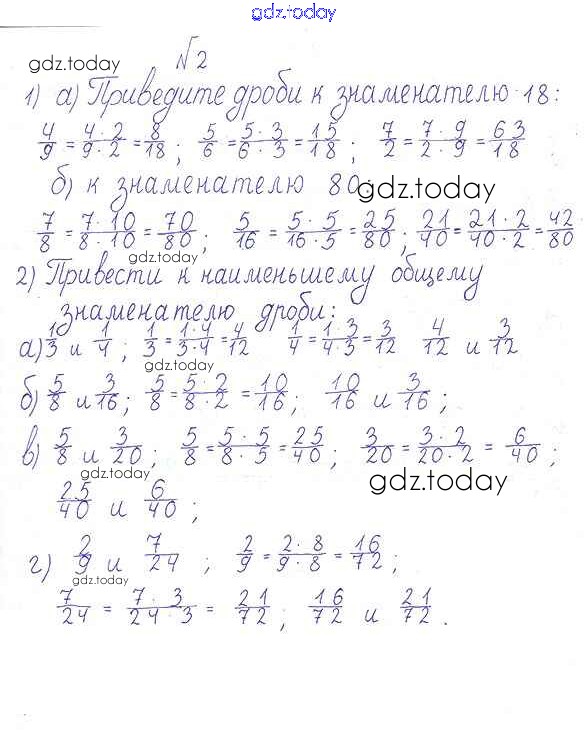 gdz.today
gdz.today
№2
1) а) Приведите дроби к знаменателю 18:
4/9 = 4·2/9·2 = 8/18; 5/6 = 5·3/6·3 = 15/18; 7/2 = 7·9/2·9 = 63/18
б) к знаменателю 80:
gdz.today
7/8 = 7·10/8·10 = 70/80; 5/16 = 5·5/16·5 = 25/80; 21/40 = 21·2/40·2 = 42/80
gdz.today
2) Привести к наименьшему общему
знаменателю дроби:
а) 1/3 и 1/4; 1/3 = 1·4/3·4 = 4/12 1/4 = 1·3/4·3 = 3/12 4/12 и 3/12
gdz.today
б) 5/8 и 3/16; 5/8 = 5·2/8·2 = 10/16; 10/16 и 3/16;
в) 5/8 и 3/20; 5/8 = 5·5/8·5 = 25/40; 3/20 = 3·2/20·2 = 6/40;
gdz.today
gdz.today
25/40 и 6/40;
г) 2/9 и 7/24; 2/9 = 2·8/9·8 = 16/72;
gdz.today
7/24 = 7·3/24·3 = 21/72; 16/72 и 21/72.